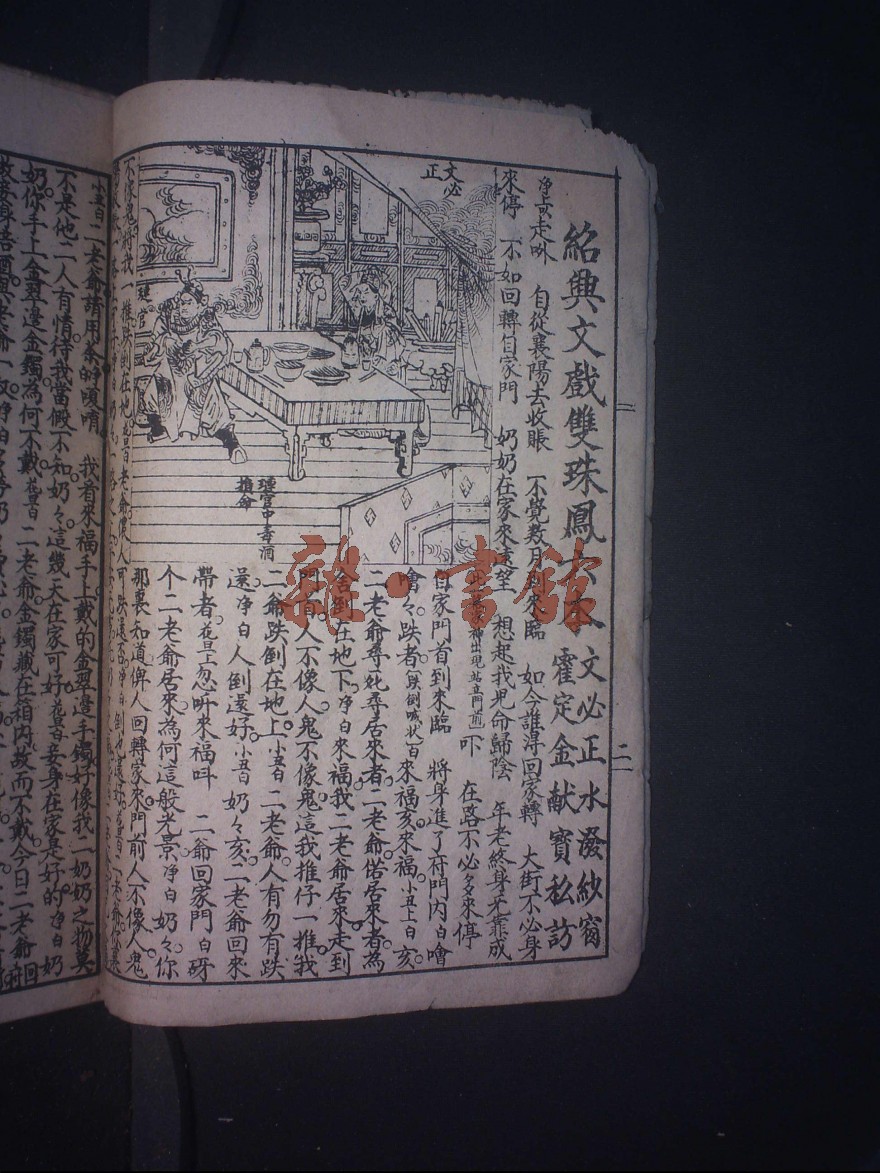 紹興文戲雙珠鳳六本
文必正水潑紗窗
霍定金献寳私訪
自從襄陽去收賬 不覺數月到來臨 如今誰淂回家轉 大街不必身
來停 不如回轉自家門 奶奶在家來遠望 想起我児命歸陰 年老終身无靠成
出現站立門前 吓 在路不必多來停
自家門首到來臨 將身進了府門内白噲
噲々跌者跌倒喊狀白來福亥來福小丑上白亥
二老爺尋我尋居來者二老爺偌居來者為
舍倒在地下净白來福我二老爺居來走到
門首人不像人鬼不像鬼這我推仔一推我
二爺跌倒在地上小丑白二老爺人有勿有跌
還净白人倒還好小丑白奶々亥二老爺回來
帶者花旦上忽听來福呌 二爺回家門白呀
个二老爺居來為何這般光景净白奶々你
那裏知道俾人回轉家來門前人不像人鬼
不像鬼將我一推跌倒在地花旦白老爺儂人可跌還否净白倒也還好花旦白二老爺你裏
文必正
瑾官
瑾官中毒酒
損命
二
小丑白二老爺請用条呀嗄唷 我看來福手上戴的金翠邊手鐲好像我二奶奶之物莫
不是他二人有情待我當假不知奶々這幾天在家可好花旦白妾身在家是好的净白奶
奶你手上金翠邊金鐲為何不戴花旦白二老爺金鐲藏在箱内故而不戴今日二老爺回
雜·書館